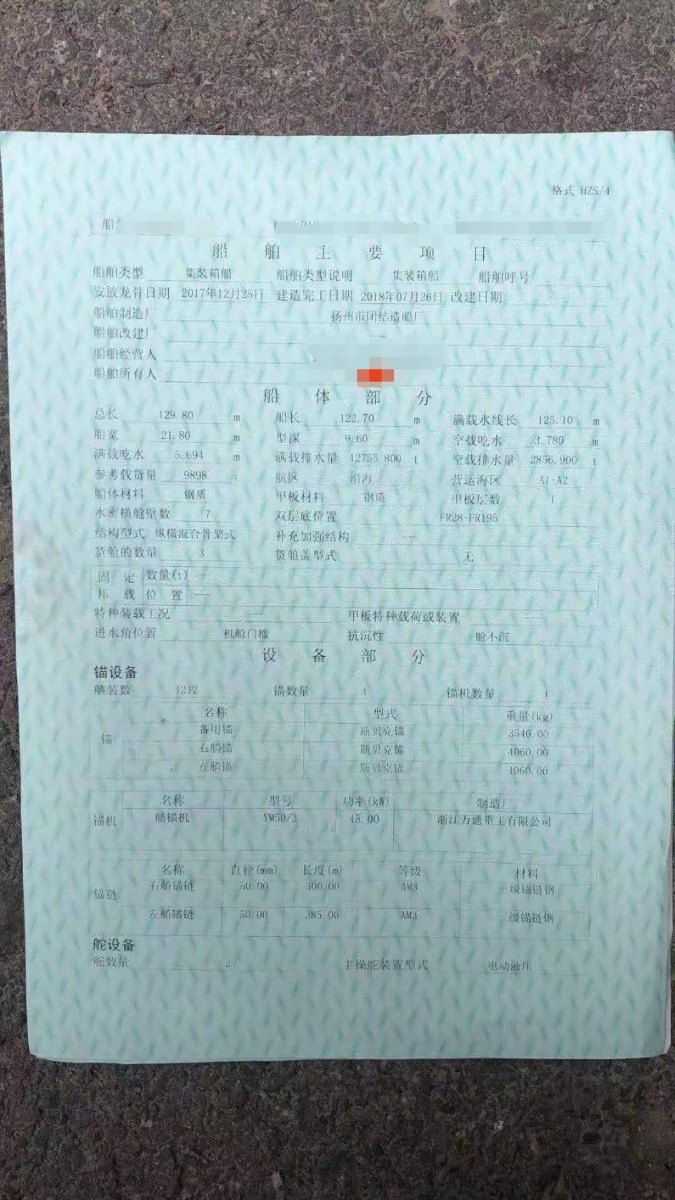 格式 HZS/4
船舶主要项目
船舶类型 集装箱船 船舶类型说明 集装箱船 船舶呼号
安放龙骨日期 2017年12月25日 建造完工日期 2018年07月26日 改建日期
船舶制造厂 扬州市团结造船厂
船舶改建厂 ——
船舶经营人
船舶所有人
船体部分
总长 129.80 m 船长 122.70 m 满载水线长 125.10 m
船宽 21.80 m 型深 9.60 m 空载吃水 3.780 m
满载吃水 5.694 m 满载排水量 12755.800 t 空载排水量 2856.900 t
参考载货量 9898 t 航区 沿海 营运海区 A1-A2
船体材料 钢质 甲板材料 钢质 甲板层数 1
水密横舱壁数 7 双层底位置 FR28-FR195
结构型式 纵横混合骨架式 补充加强结构 ——
货舱的数量 3 货舱盖型式 无
固定 数量(t) ——
压载 位置 ——
特种装载工况 —— 甲板特种载荷或装置
进水角位置 机舱门槛 抗沉性 一舱不沉
设备部分
锚设备
舾装数 1212 锚数量 3 锚机数量 1
锚 名称 型式 重量(kg)
备用锚 斯贝克锚 3540.00
右艏锚 斯贝克锚 4060.00
左艏锚 斯贝克锚 4060.00
锚机 名称 型号 功率(kW) 制造厂
艏锚机 YM50/3 45.00 浙江方通重工有限公司
锚链 名称 直径(mm) 长度(m) 等级 材料
右艏锚链 50.00 300.00 AM3 三级锚链钢
左艏锚链 50.00 385.00 AM3 三级锚链钢
舵设备
舵数量 2 主操舵装置型式 电动液压